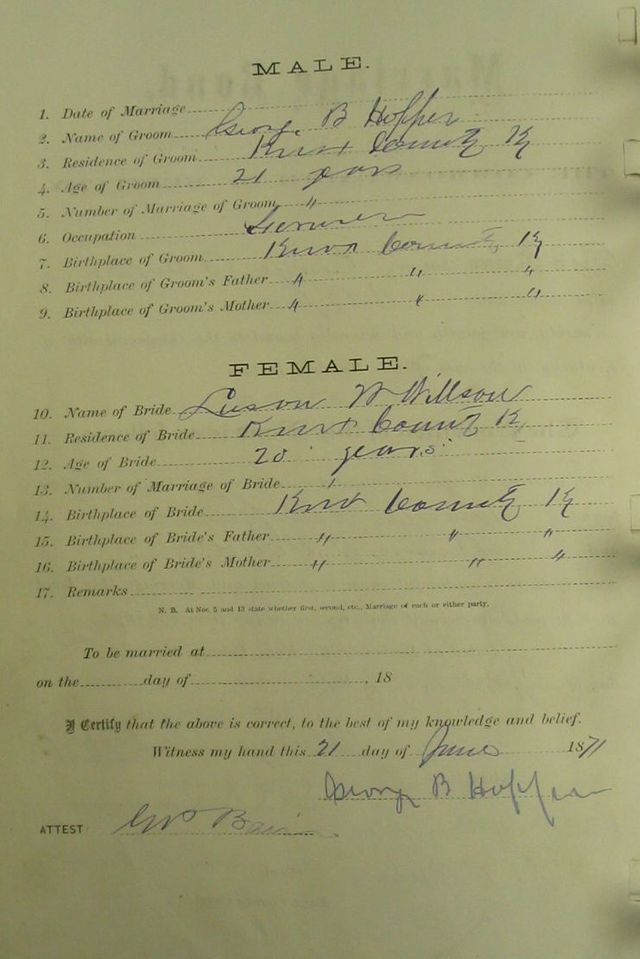 MALE.
1. Date of Marriage
2. Name of Groom George B Hopper
3. Residence of Groom Knox County Ky
4. Age of Groom 21 years
5. Number of Marriage of Groom "
6. Occupation Farmer
7. Birthplace of Groom Knox County Ky
8. Birthplace of Groom's Father " " "
9. Birthplace of Groom's Mother " " "
FEMALE.
10. Name of Bride W Willson
11. Residence of Bride Knox County Ky
12. Age of Bride 20 years
13. Number of Marriage of Bride
14. Birthplace of Bride Knox County Ky
15. Birthplace of Bride's Father " " "
16. Birthplace of Bride's Mother " " "
17. Remarks
N. B. At Nos. 5 and 13 state whether first, second, etc., Marriage of each or either party.
To be married at
on the day of , 18
I Certify that the above is correct, to the best of my knowledge and belief.
Witness my hand this 21 day of June 1871
George B Hopper
ATTEST